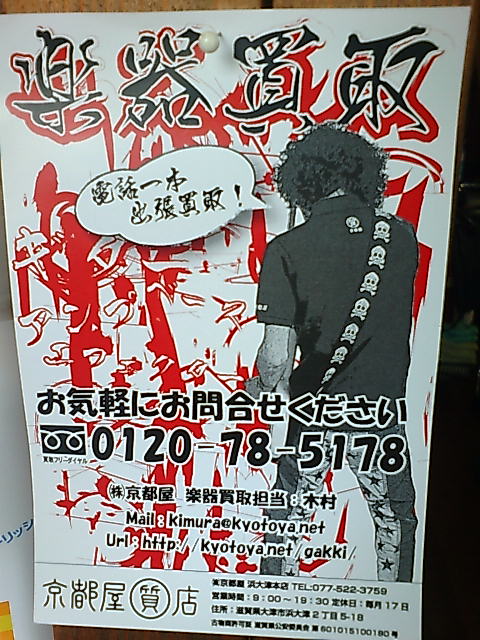 楽器買取
電話一本
出張買取!
ギター
アンプ
お気軽にお問合せください
買取フリーダイヤル
0120-78-5178
㈱京都屋 楽器買取担当:木村
Mail:kimura@kyotoya.net
Url:http://kyotoya.net/gakki/
京都屋質店
㈱京都屋 浜大津本店 TEL:077-522-3759
営業時間:9:00～19:30 定休日:毎月17日
住所:滋賀県大津市浜大津2丁目5-18
古物商許可証 滋賀県公安委員会 第601015100180号